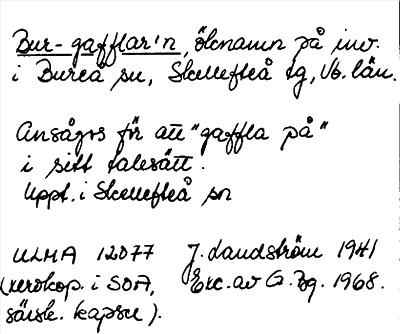 Bur-gafflar'n, öknamn på inv.
i Bureå sn, Skellefteå tg, Vb. län.
Ansågos för att "gaffla på"
i sitt talesätt.
Uppt. i Skellefteå sn
ULMA 12077 J. Landström 1941
(xerokop. i SOA, Exc. av G. Bg. 1968.
särsk. kapsel).